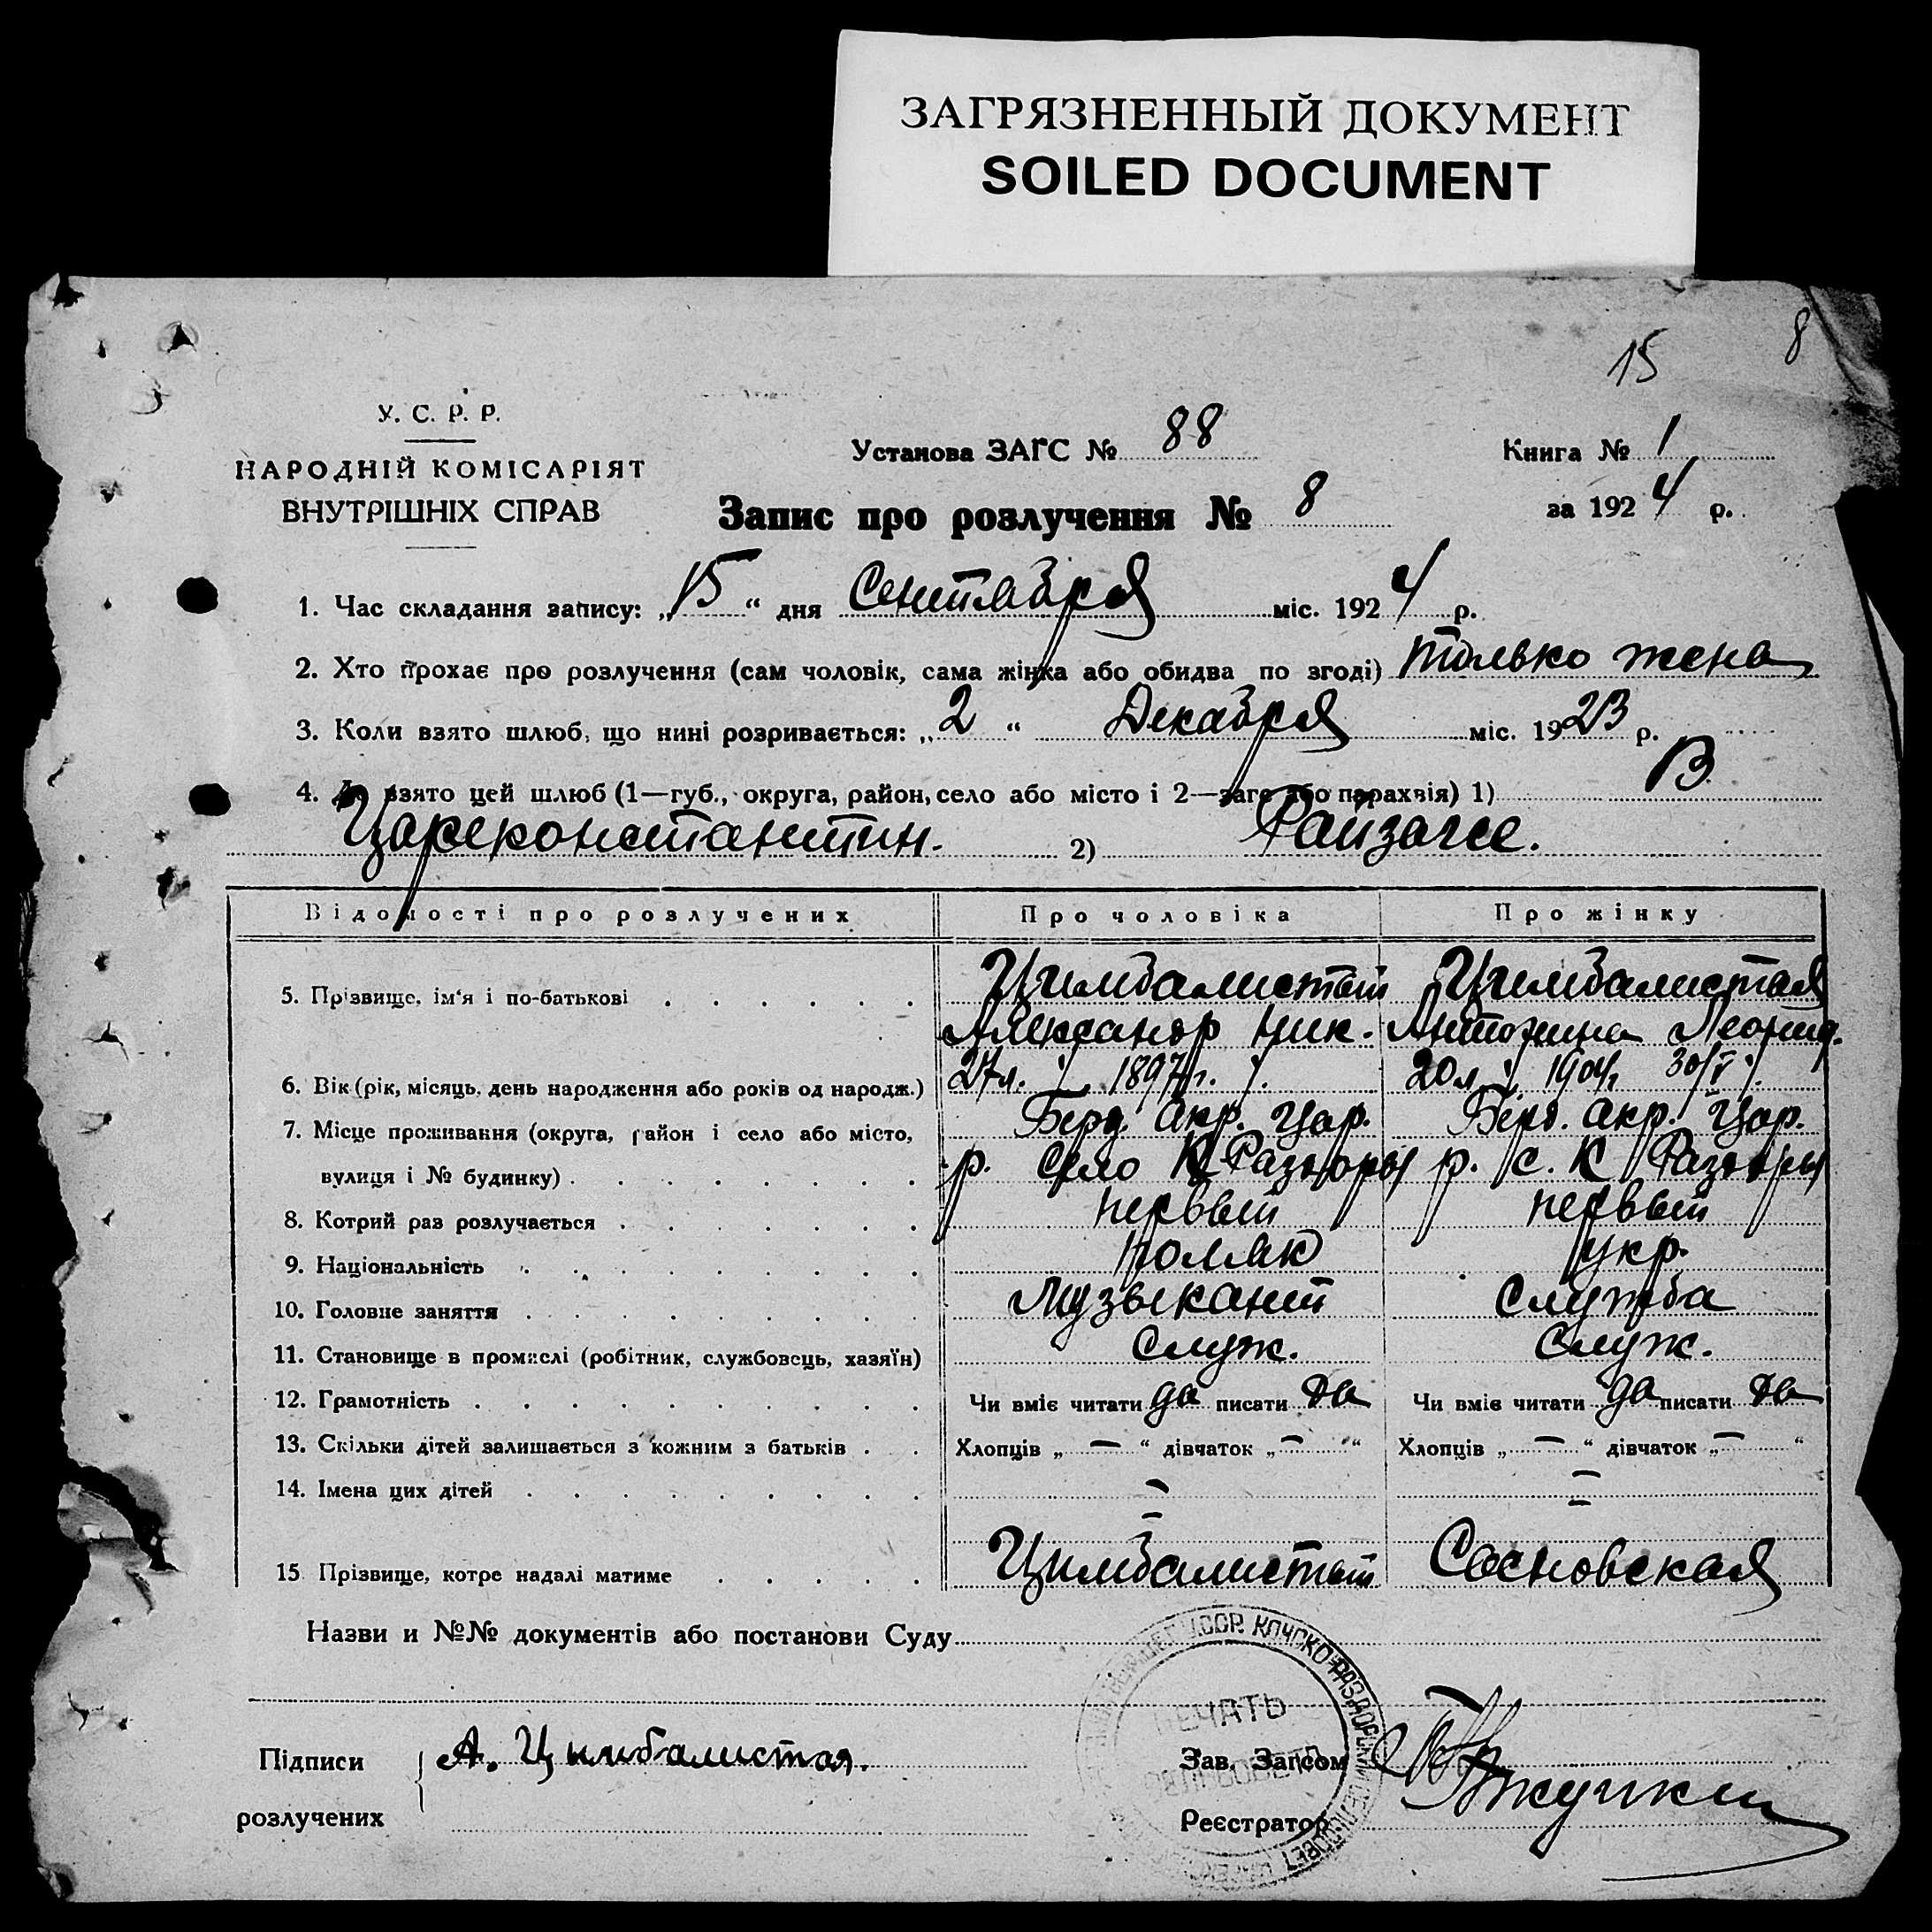 ЗАГРЯЗНЕННЫЙ ДОКУМЕНТ
SOILED DOCUMENT
15 8
У. С. Р. Р.
НАРОДНІЙ КОМІСАРІЯТ
ВНУТРІШНІХ СПРАВ
Установа ЗАГС № 88
Книга № 1
Запис про розлучення № 8
за 1924 р.
1. Час складання запису: „15“ дня Сентября міс. 1924 р.
2. Хто прохає про розлучення (сам чоловік, сама жінка або обидва по згоді) только жена
3. Коли взято шлюб, що нині розривається: „2“ Декабря міс. 1923 р.
4. Де взято цей шлюб (1—губ., округа, район, село або місто і 2—загс або парахвія) 1) В
Цареконстантин. 2) Райзагсе.
Відомості про розлучених Про чоловіка Про жінку
5. Прізвище, ім'я і по-батькові Цимбалистый Цимбалистая
Александр Ник. Антонина Леонид.
6. Вік (рік, місяць, день народження або років од народж.) 27 л. 1897 г. 20 л. 1904 г. 30/V
7. Місце проживання (округа, район і село або місто, Берд. окр. Цар. Берд. окр. Цар.
вулиця і № будинку) р. село К Раздоры р. с. К Раздоры
8. Котрий раз розлучається первый первый
9. Національність поляк укр.
10. Головне заняття Музыкант Служба
11. Становище в промислі (робітник, службовець, хазяїн) служ. служ.
12. Грамотність Чи вміє читати да писати да Чи вміє читати да писати да
13. Скільки дітей залишається з кожним з батьків Хлопців „—“ дівчаток „—“ Хлопців „—“ дівчаток „—“
14. Імена цих дітей — —
— —
15 Прізвище, котре надалі матиме Цимбалистый Сосновская
Назви и №№ документів або постанови Суду
УССР. КОНСКО-РАЗДОРСКИЙ
ПЕЧАТЬ
Підписи А. Цимбалистая. Зав. Загсом
розлучених Реєстратор